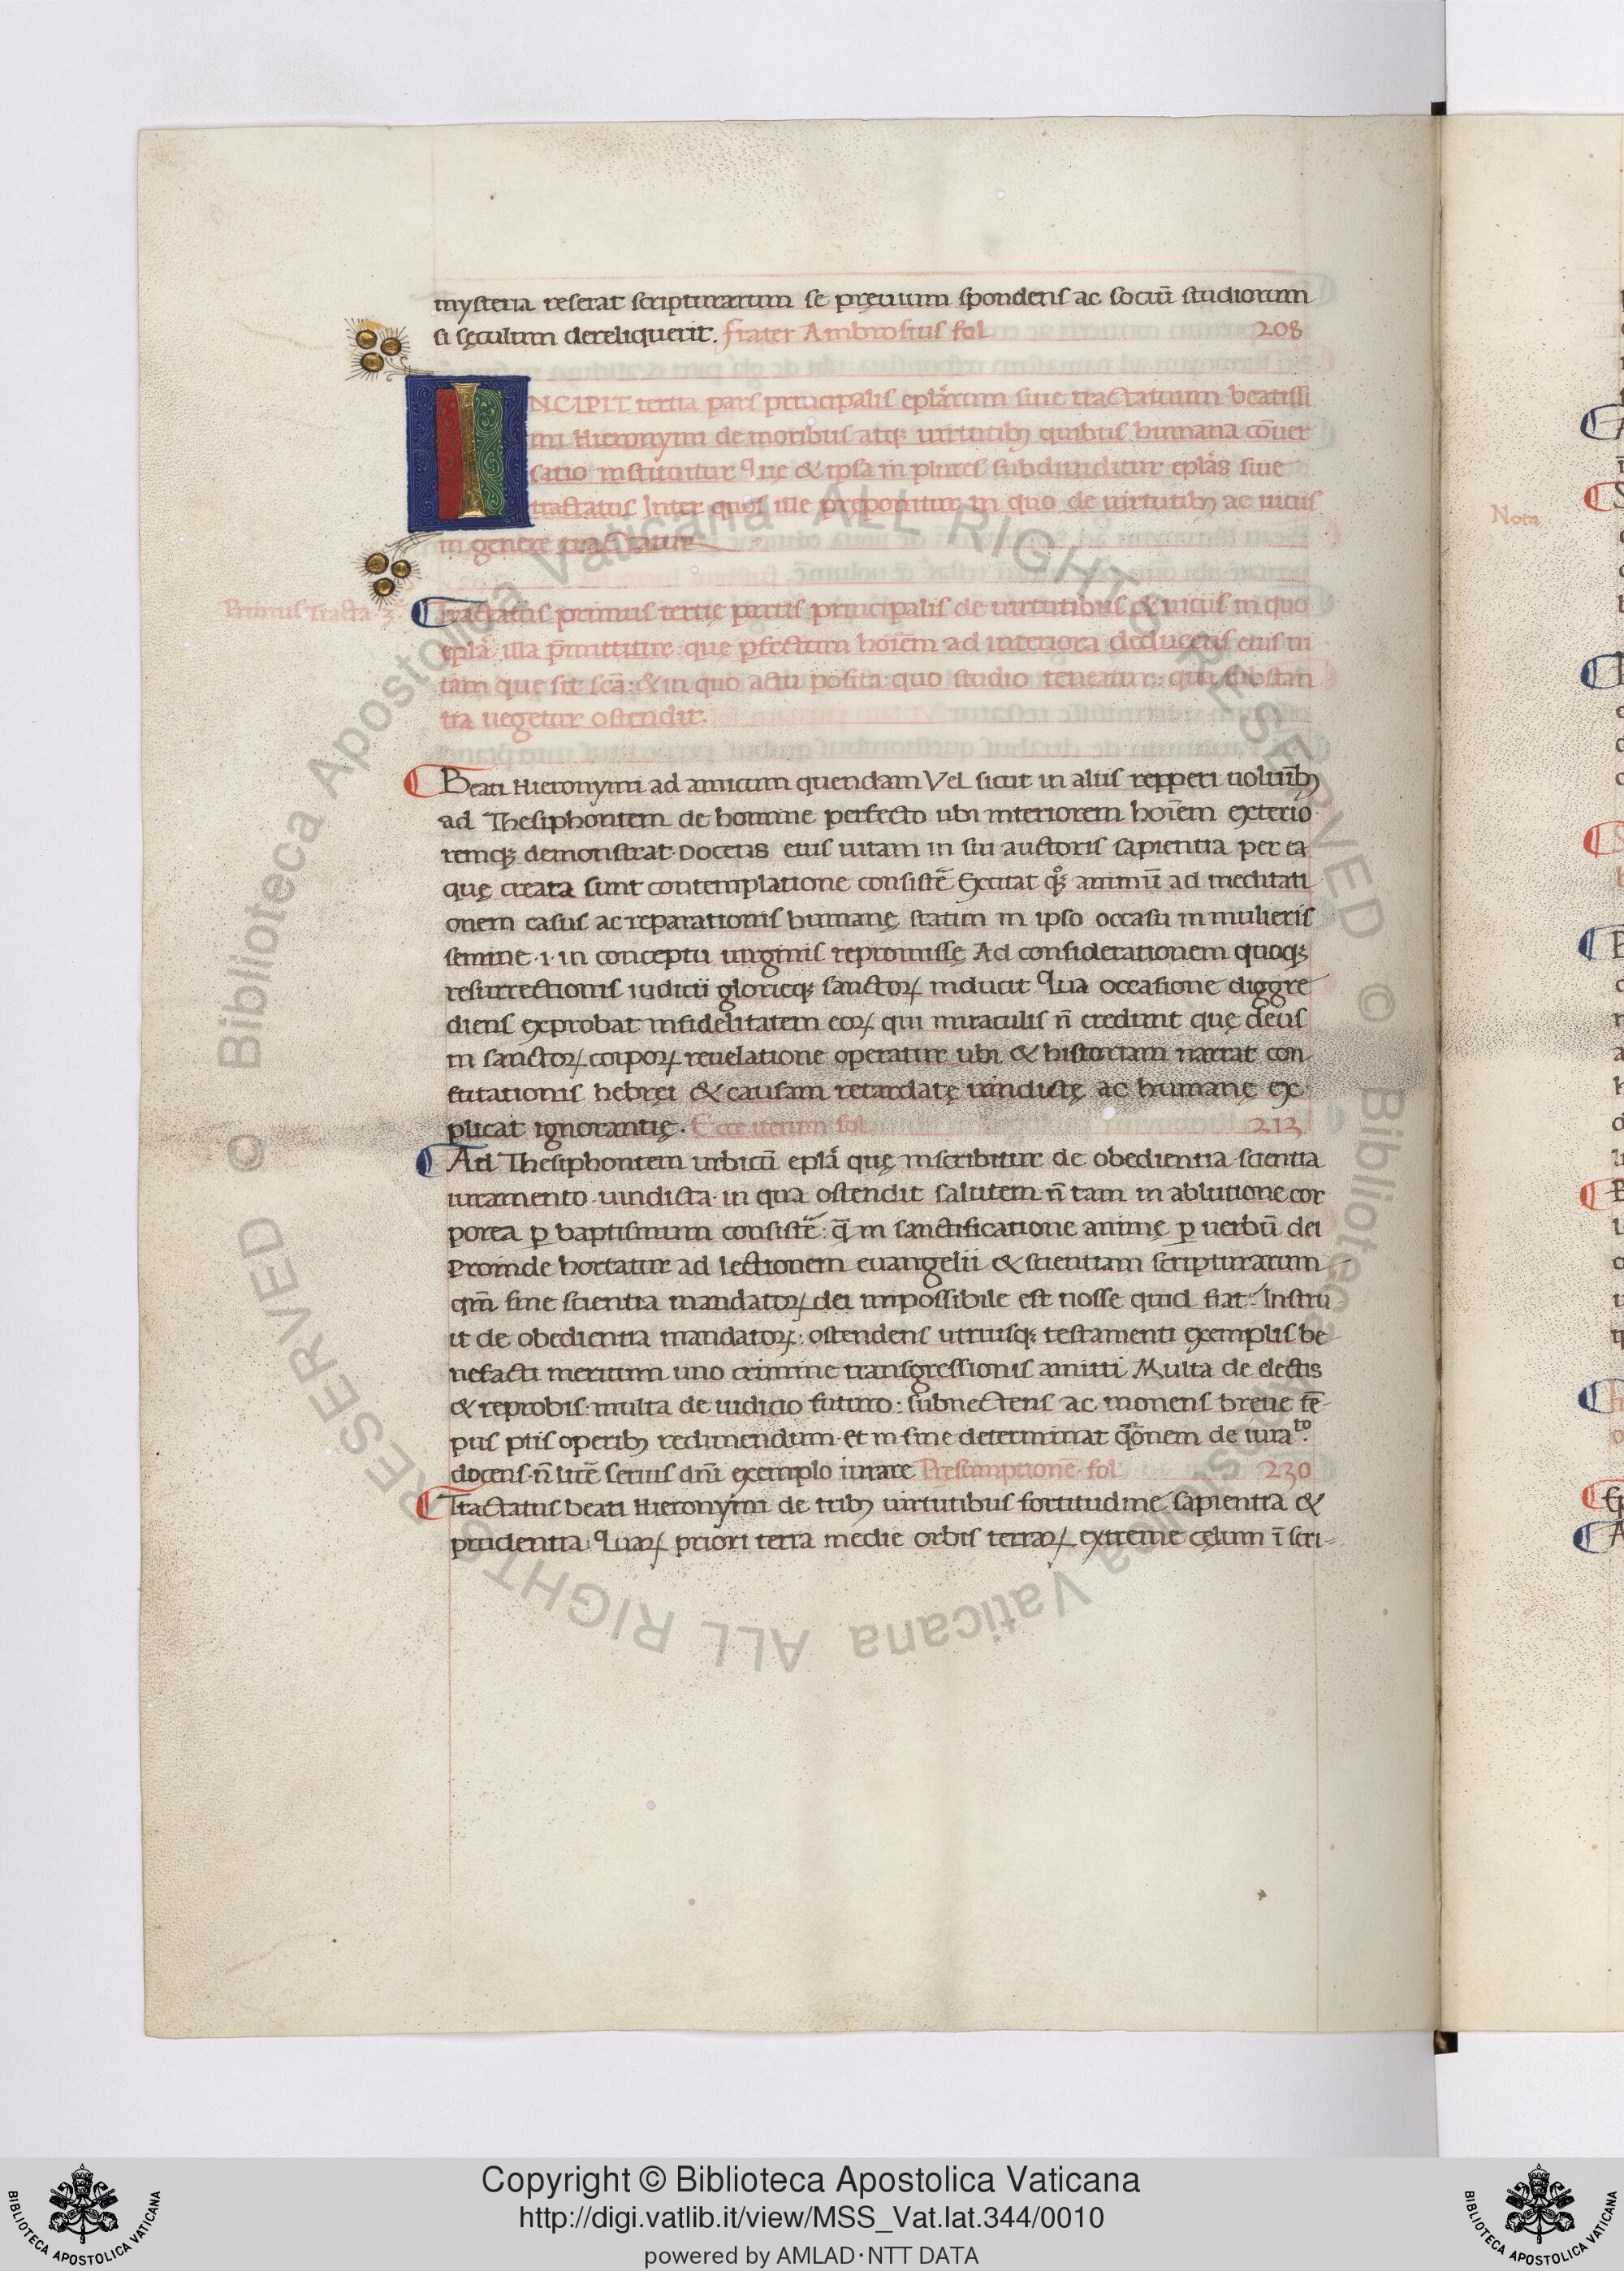 mysteria reserat scripturarum se pręuium spondens ac sociū studiorum
si sęculum dereliquerit. frater Ambrosius fol 208
INCIPIT tertia pars principalis eplārum siue tractatuum beatissi
mi Hieronymi de moribus atq; uirtutibȝ quibus humana cōuer
satio instituitur Que & ipsa in plures subdiuiditur eplās siue
tractatus Inter quos ille pręponitur in quo de uirtutibȝ ac uiciis
in genere tractatur
Primus Tracta. 3ę
Tractatus primus tertię partis principalis de uirtutibus & uiciis in quo
eplā illa p̄mittitur: que pfectum hoīem ad interiora deducens eius ui
tam que sit scā: & in quo actu posita: quo studio teneatur: qua substan
tia uegetur ostendit.
Beati Hieronymi ad amicum quendam Vel sicut in aliis repperi uolūibȝ
ad Thesiphontem de homine perfecto ubi interiorem hoīem exterio
remq; demonstrat. Docens eius uitam in sui auctoris sapientia per ea
quę creata sunt contemplatione consistē Excitat qȝ animū ad meditati
onem casus ac reparationis humanę statim in ipso occasu in mulieris
semine .i. in conceptu uirginis repromissę Ad considerationem quoq;
resurrectionis iudicii glorieq; sanctoꝝ inducit Qua occasione diggre
diens exprobat infidelitatem eoꝝ qui miraculis n̄ credunt quę deus
in sanctoꝝ corpoꝝ reuelatione operatur ubi & historiam narrat con
stitationis hebręi & causam retardatę uindictę ac humanę ex
plicat ignorantię. Ecce iterum fol 213
Ad Thesiphontem urbicū eplā quę inscribitur de obedientia scientia
iuramento uindicta in qua ostendit salutem n̄ tam in ablutione cor
porea ꝑ baptismum consistē: q̄ in sanctificatione animę ꝑ uerbū dei
Proinde hortatur ad lectionem euangelii & scientiam scripturarum
qm̄ sine scientia mandatoꝝ dei impossibile est nosse quid fiat. Instru
it de obedientia mandatoꝝ: ostendens utriusq; testamenti exemplis be
nefacti meritum uno crimine transgressionis amitti Multa de electis
& reprobis: multa de iudicio futuro: subnectens ac monens breue tē
pus piis operibȝ redimendum. et in fine determinat q̄ōnem de iura to.
docens. n̄ licē seruis dn̄i exemplo iurare Presumptione fol 230
Tractatus beati Hieronymi de tribȝ uirtutibus fortitudine sapientia &
prudentia. Quaꝝ priori terra medie orbis terraꝝ extreme cęlum ī scri-
Nota
Copyright © Biblioteca Apostolica Vaticana
http://digi.vatlib.it/view/MSS_Vat.lat.344/0010
powered by AMLAD·NTT DATA
BIBLIOTECA APOSTOLICA VATICANA
BIBLIOTECA APOSTOLICA VATICANA
© Biblioteca Apostolica Vaticana ALL RIGHTS RESERVED
© Biblioteca Apostolica Vaticana ALL RIGHTS RESERVED